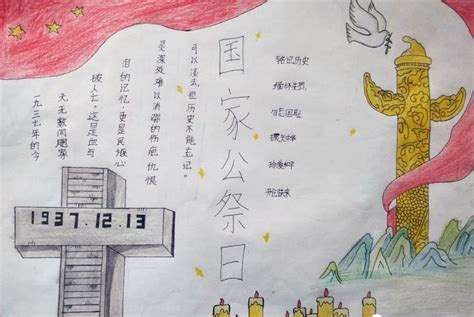 国家公祭日
一九三七年的今
天无数同胞家
破人亡。这是血与
泪的记忆，更是民族心
灵深处难以消弭的伤疤仇恨
可以淡去，但历史不能忘记。
铭记历史
缅怀先烈，
勿忘国耻
振兴中华
珍爱和平
开创未来
1937.12.13